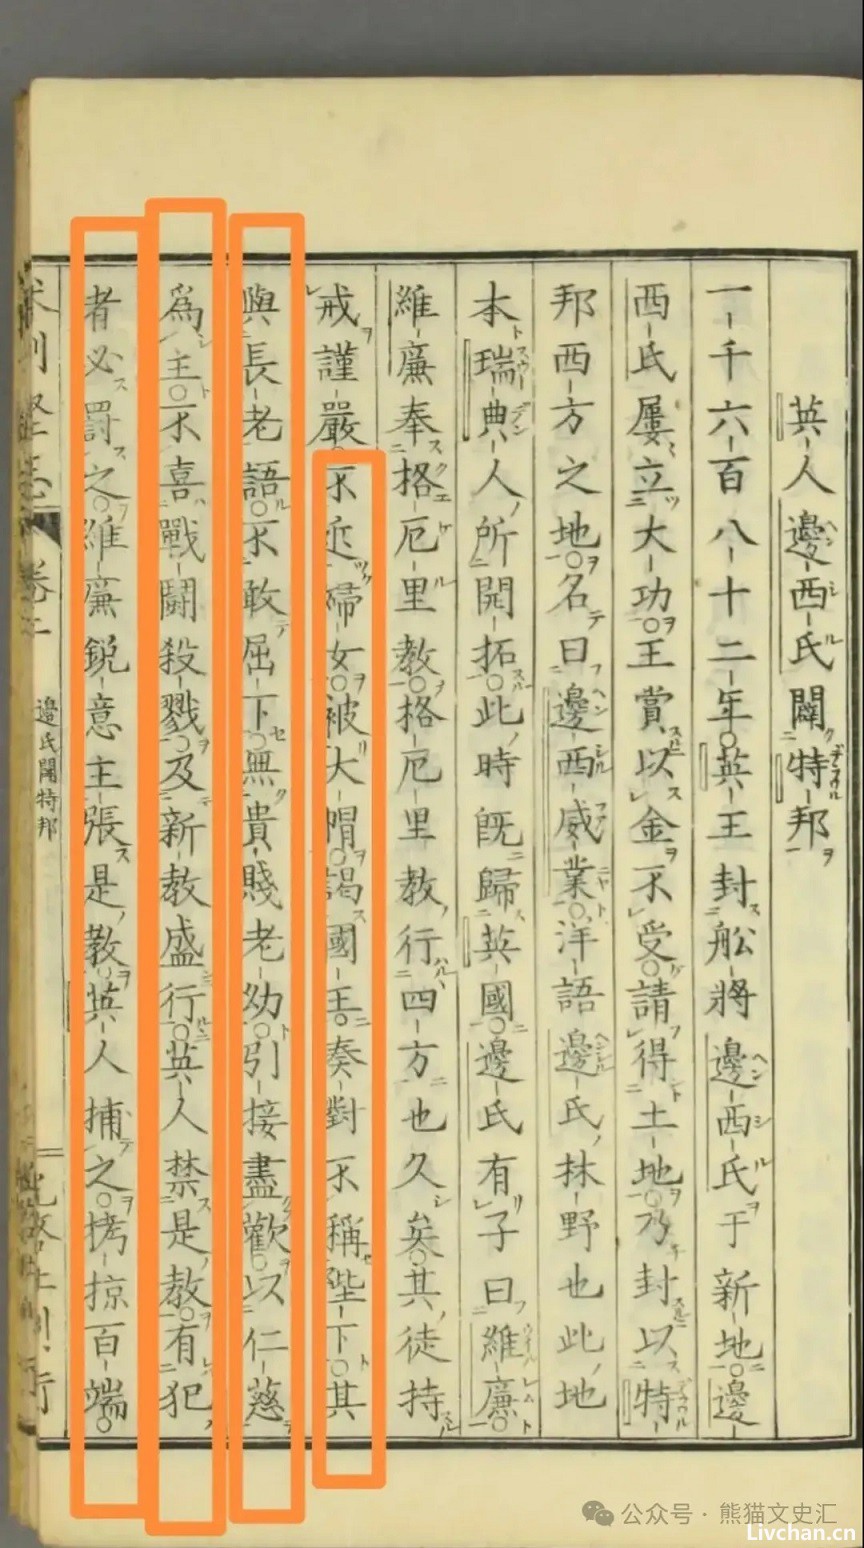 英人邊西氏闢特邦
一千六百八十二年。英王封船將邊西氏于新地。邊
西氏屢立大功。王賞以金不受。請得土地。乃封以特
邦西方之地。名曰邊西威業。洋語邊氏林野也此地
本瑞典人所開拓。此時既歸英國。邊氏有子曰維廉。
維廉奉格厄里教。格厄里教行四方也久矣。其徒持
戒謹嚴。不近婦女。被大帽。謁國王。奏對不稱陛下。其
與長老語。不敢屈下。無貴賤老幼。引接盡歡。以仁慈
爲主。不喜戰鬪殺戮。及新教盛行。英人禁是教。有犯
者必罰之。維廉銳意主張是教。英人捕之。拷掠百端。
邊氏開特邦
公众号·熊猫文史汇
Livchan.cn